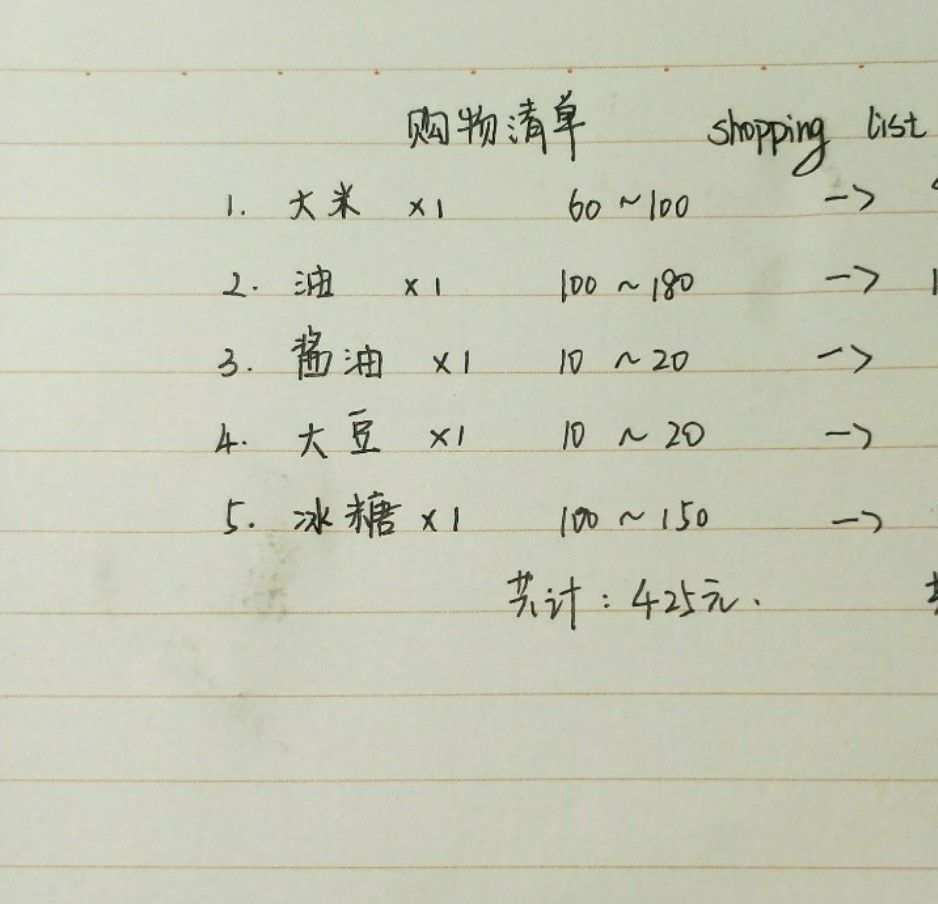 购物清单 shopping list
1. 大米 ×1 60~100 ->
2. 油 ×1 100~180 -> 1
3. 酱油 ×1 10~20 ->
4. 大豆 ×1 10~20 ->
5. 冰糖 ×1 100~150 ->
共计:425元.